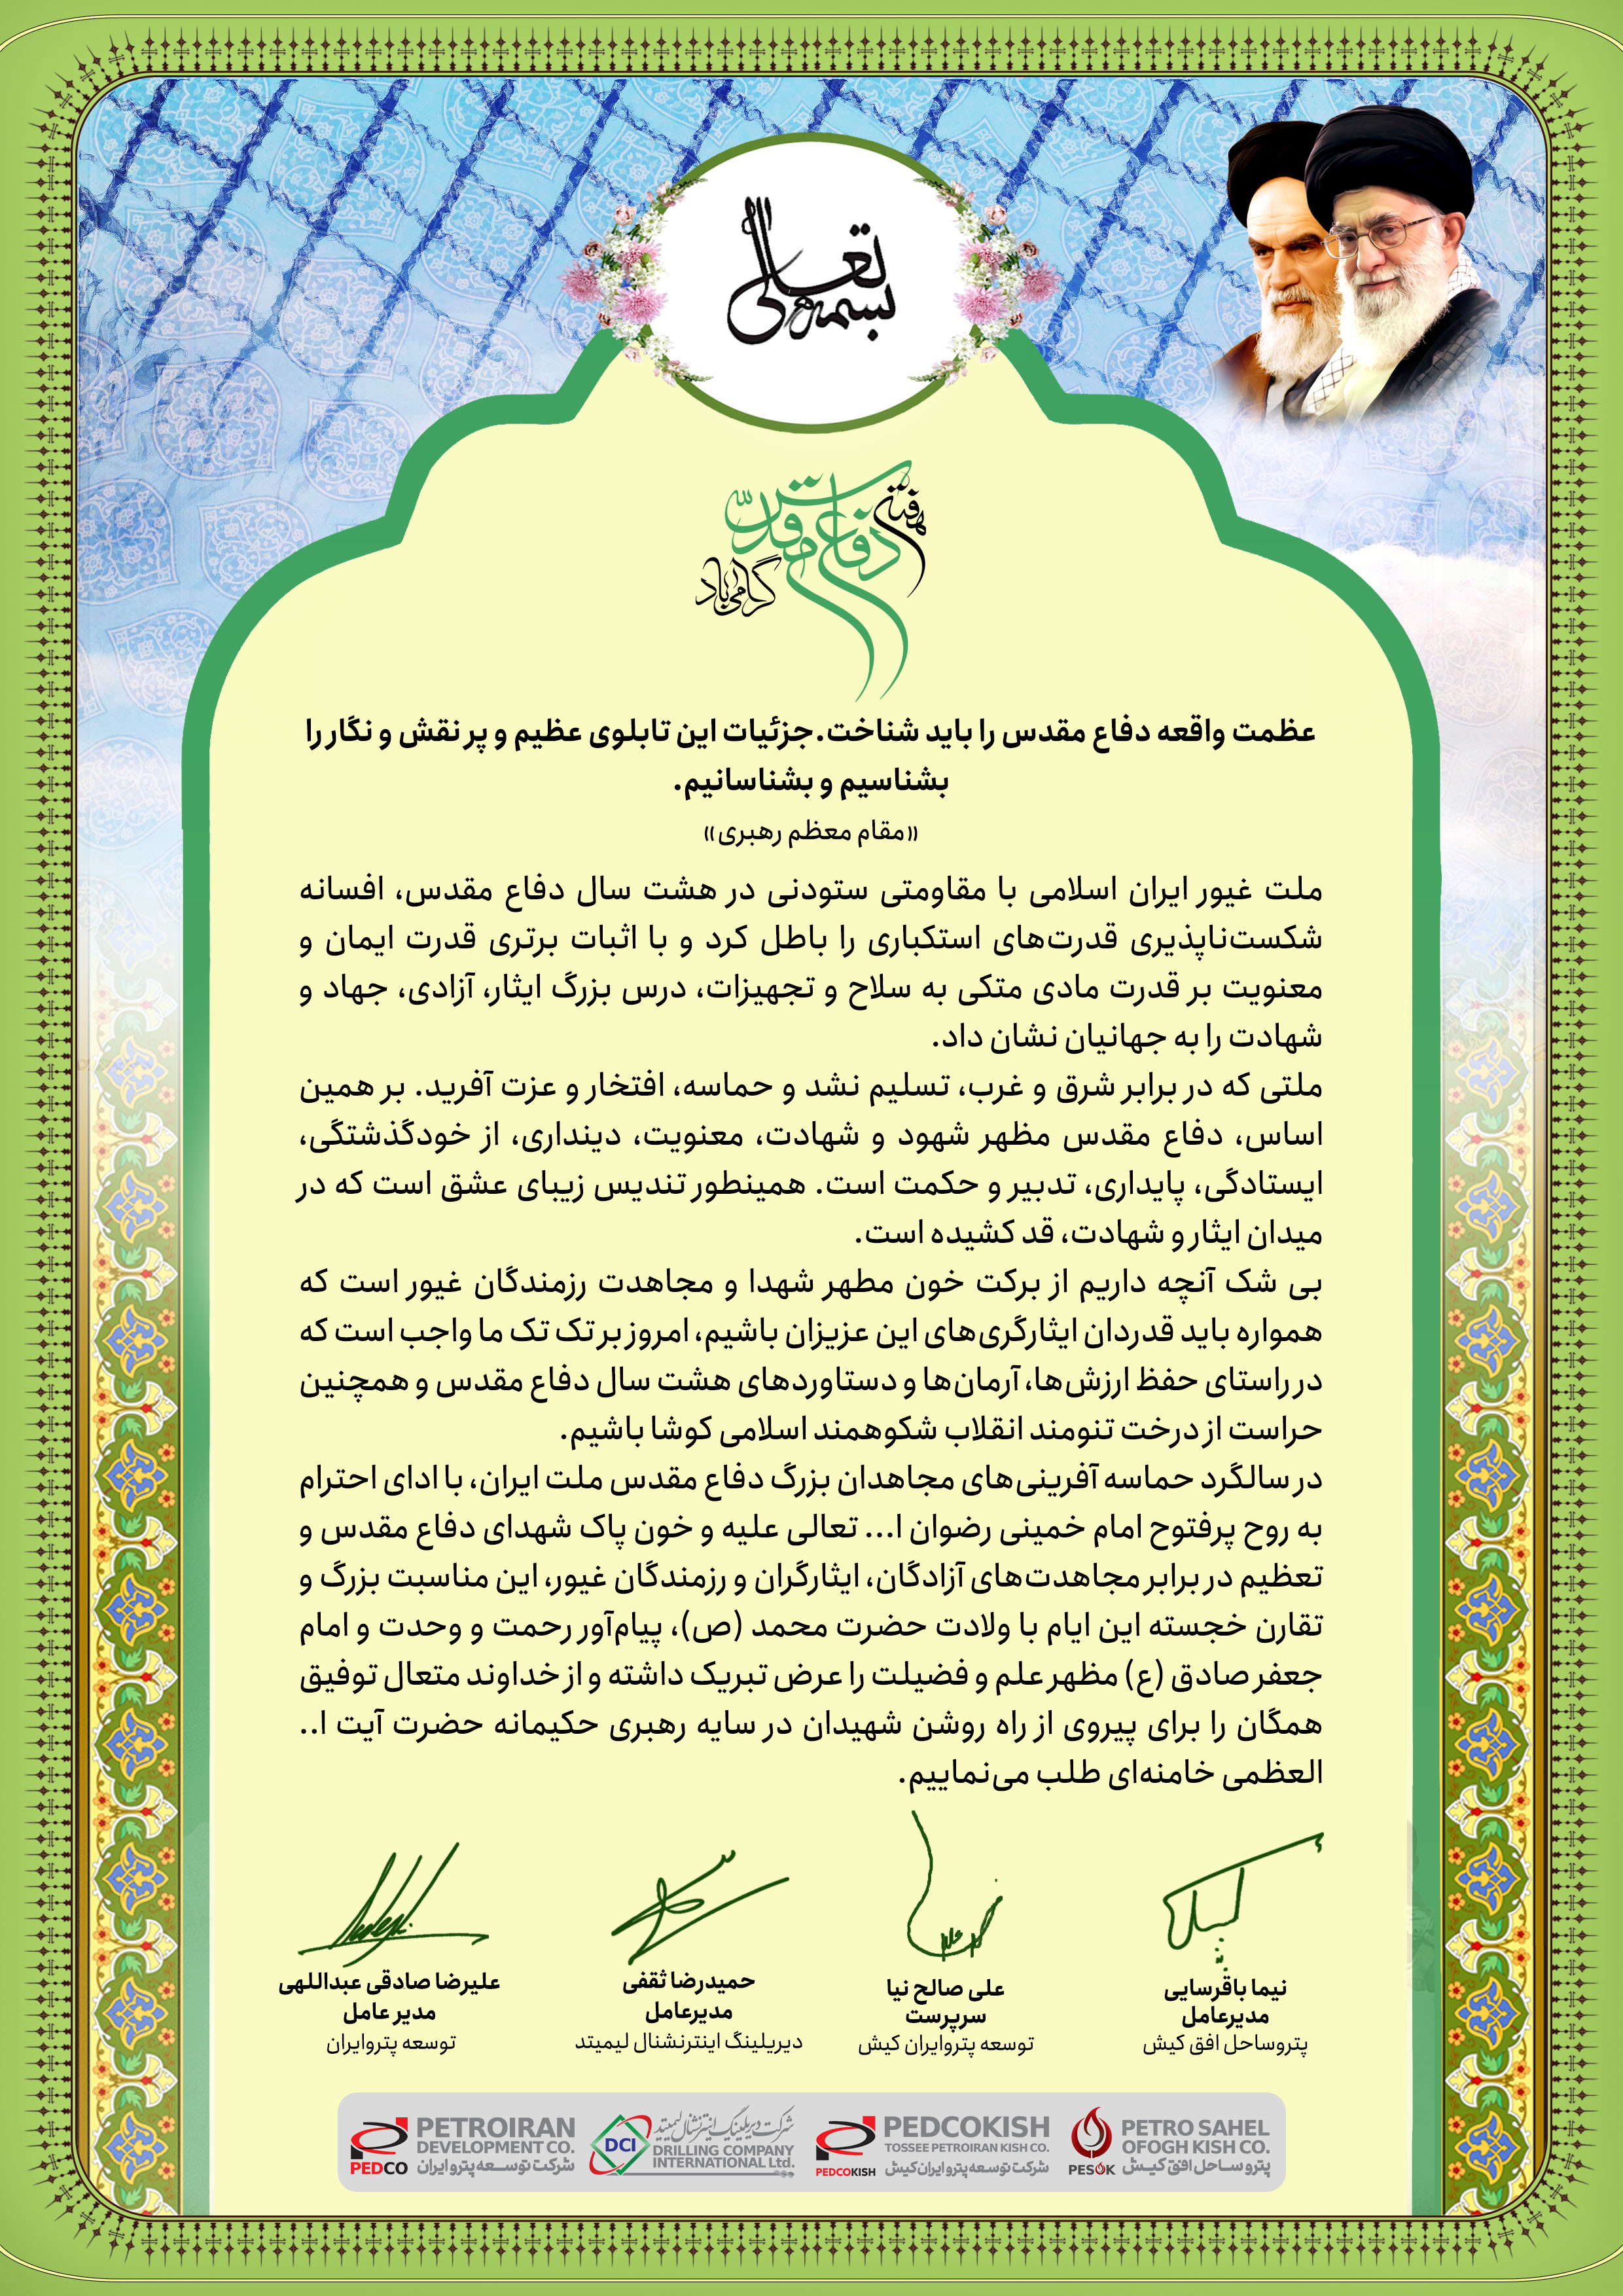 بسمه تعالی
هفته دفاع مقدّس گرامی باد
عظمت واقعه دفاع مقدس را باید شناخت.جزئیات این تابلوی عظیم و پر نقش و نگار را
بشناسیم و بشناسانیم.
«مقام معظم رهبری»
ملت غیور ایران اسلامی با مقاومتی ستودنی در هشت سال دفاع مقدس، افسانه
شکست‌ناپذیری قدرت‌های استکباری را باطل کرد و با اثبات برتری قدرت ایمان و
معنویت بر قدرت مادی متکی به سلاح و تجهیزات، درس بزرگ ایثار، آزادی، جهاد و
شهادت را به جهانیان نشان داد.
ملتی که در برابر شرق و غرب، تسلیم نشد و حماسه، افتخار و عزت آفرید. بر همین
اساس، دفاع مقدس مظهر شهود و شهادت، معنویت، دینداری، از خودگذشتگی،
ایستادگی، پایداری، تدبیر و حکمت است. همینطور تندیس زیبای عشق است که در
میدان ایثار و شهادت، قد کشیده است.
بی شک آنچه داریم از برکت خون مطهر شهدا و مجاهدت رزمندگان غیور است که
همواره باید قدردان ایثارگری‌های این عزیزان باشیم، امروز بر تک تک ما واجب است که
در راستای حفظ ارزش‌ها، آرمان‌ها و دستاوردهای هشت سال دفاع مقدس و همچنین
حراست از درخت تنومند انقلاب شکوهمند اسلامی کوشا باشیم.
در سالگرد حماسه آفرینی‌های مجاهدان بزرگ دفاع مقدس ملت ایران، با ادای احترام
به روح پرفتوح امام خمینی رضوان ا... تعالی علیه و خون پاک شهدای دفاع مقدس و
تعظیم در برابر مجاهدت‌های آزادگان، ایثارگران و رزمندگان غیور، این مناسبت بزرگ و
تقارن خجسته این ایام با ولادت حضرت محمد (ص)، پیام‌آور رحمت و وحدت و امام
جعفر صادق (ع) مظهر علم و فضیلت را عرض تبریک داشته و از خداوند متعال توفیق
همگان را برای پیروی از راه روشن شهیدان در سایه رهبری حکیمانه حضرت آیت ا..
العظمی خامنه‌ای طلب می‌نماییم.
نیما باقرسایی
مدیرعامل
پتروساحل افق کیش
علی صالح نیا
سرپرست
توسعه پتروایران کیش
حمیدرضا ثقفی
مدیرعامل
دیریلینگ اینترنشنال لیمیتد
علیرضا صادقی عبداللهی
مدیر عامل
توسعه پتروایران
PEDCO
PETROIRAN
DEVELOPMENT CO.
شرکت توسعه پترو ایران
DCI
شرکت دریلینگ اینترنشنال لیمیتد
DRILLING COMPANY
INTERNATIONAL Ltd.
PEDCOKISH
PEDCOKISH
TOSSEE PETROIRAN KISH CO.
شرکت توسعه پترو ایران کیش
PESOK
PETRO SAHEL
OFOGH KISH CO.
پترو ساحل افق کیش